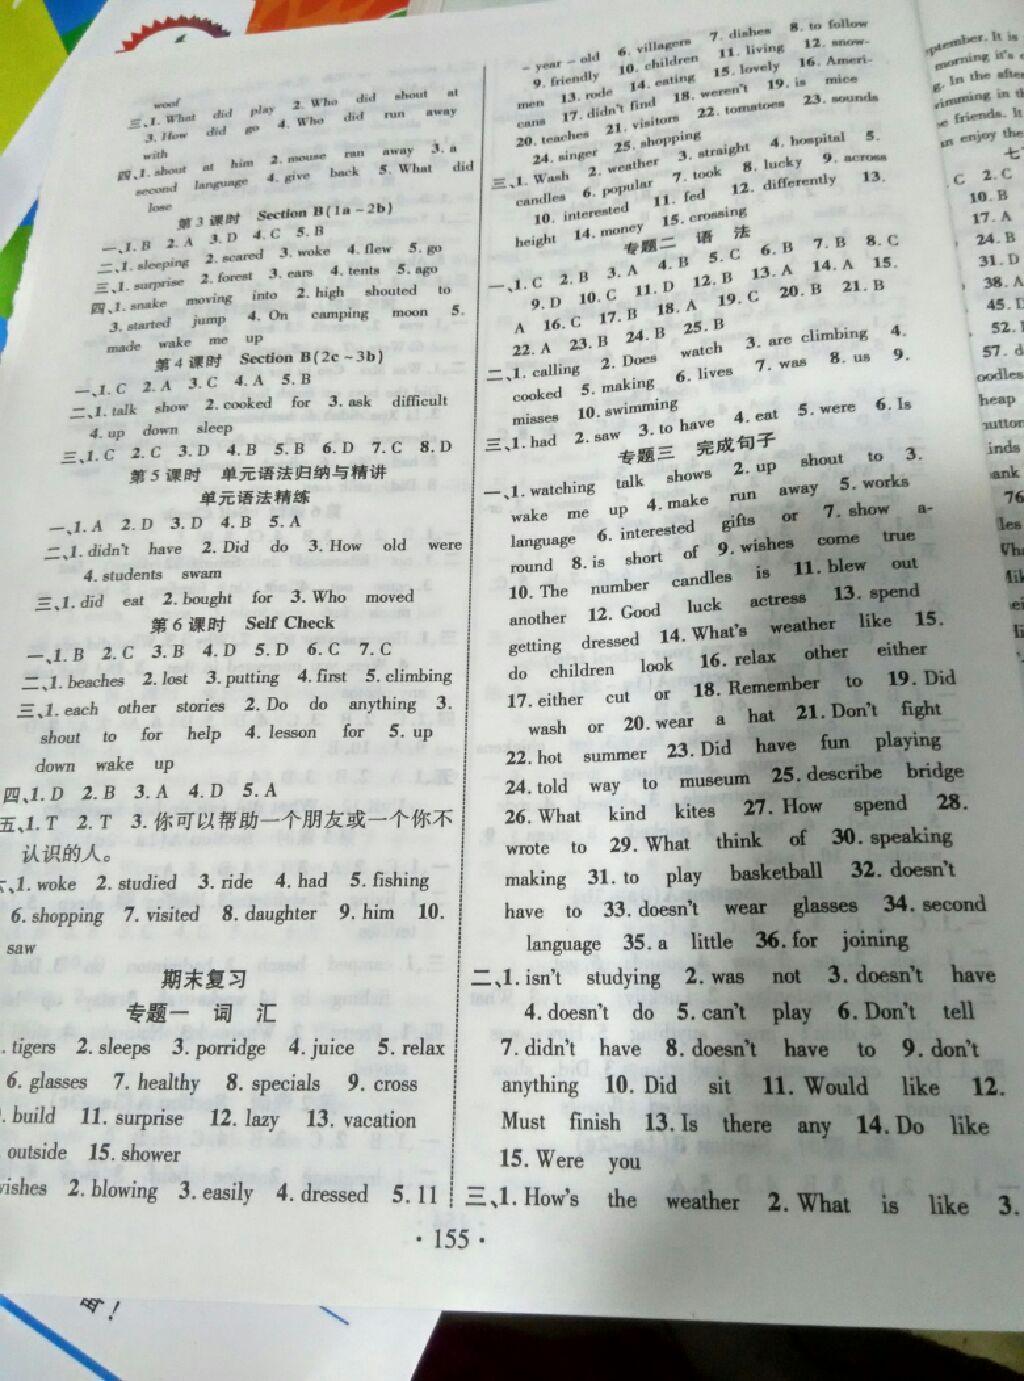 woof
三、1. What did play 2. Who did shout at
3. How did go 4. Who did run away
with
四、1. shout at him 2. mouse ran away 3. a
second language 4. give back 5. What did
lose
第3课时 Section B(1a~2b)
一、1. B 2. A 3. D 4. C 5. B
二、1. sleeping 2. scared 3. woke 4. flew 5. go
三、1. surprise 2. forest 3. ears 4. tents 5. ago
四、1. snake moving into 2. high shouted to
3. started jump 4. On camping moon 5.
made wake me up
第4课时 Section B(2c~3b)
一、1. C 2. A 3. C 4. A 5. B
二、1. talk show 2. cooked for 3. ask difficult
4. up down sleep
三、1. C 2. C 3. D 4. B 5. B 6. D 7. C 8. D
第5课时 单元语法归纳与精讲
单元语法精练
一、1. A 2. D 3. D 4. B 5. A
二、1. didn't have 2. Did do 3. How old were
4. students swam
三、1. did eat 2. bought for 3. Who moved
第6课时 Self Check
一、1. B 2. C 3. B 4. D 5. D 6. C 7. C
二、1. beaches 2. lost 3. putting 4. first 5. climbing
三、1. each other stories 2. Do do anything 3.
shout to for help 4. lesson for 5. up
down wake up
四、1. D 2. B 3. A 4. D 5. A
五、1. T 2. T 3. 你可以帮助一个朋友或一个你不
认识的人。
、1. woke 2. studied 3. ride 4. had 5. fishing
6. shopping 7. visited 8. daughter 9. him 10.
saw
期末复习
专题一 词 汇
. tigers 2. sleeps 3. porridge 4. juice 5. relax
6. glasses 7. healthy 8. specials 9. cross
. build 11. surprise 12. lazy 13. vacation
. outside 15. shower
wishes 2. blowing 3. easily 4. dressed 5. 11
- year - old 6. villagers 7. dishes 8. to follow
9. friendly 10. children 11. living 12. snow-
men 13. rode 14. eating 15. lovely 16. Ameri-
cans 17. didn't find 18. weren't 19. is mice
20. teaches 21. visitors 22. tomatoes 23. sounds
24. singer 25. shopping
三、1. Wash 2. weather 3. straight 4. hospital 5.
candles 6. popular 7. took 8. lucky 9. across
10. interested 11. fed 12. differently 13.
height 14. money 15. crossing
专题二 语 法
一、1. C 2. B 3. A 4. B 5. C 6. B 7. B 8. C
9. D 10. C 11. D 12. B 13. A 14. A 15.
A 16. C 17. B 18. A 19. C 20. B 21. B
22. A 23. B 24. B 25. B
二、1. calling 2. Does watch 3. are climbing 4.
cooked 5. making 6. lives 7. was 8. us 9.
misses 10. swimming
三、1. had 2. saw 3. to have 4. eat 5. were 6. Is
专题三 完成句子
一、1. watching talk shows 2. up shout to 3.
wake me up 4. make run away 5. works
language 6. interested gifts or 7. show a-
round 8. is short of 9. wishes come true
10. The number candles is 11. blew out
another 12. Good luck actress 13. spend
getting dressed 14. What's weather like 15.
do children look 16. relax other either
17. either cut or 18. Remember to 19. Did
wash or 20. wear a hat 21. Don't fight
22. hot summer 23. Did have fun playing
24. told way to museum 25. describe bridge
26. What kind kites 27. How spend 28.
wrote to 29. What think of 30. speaking
making 31. to play basketball 32. doesn't
have to 33. doesn't wear glasses 34. second
language 35. a little 36. for joining
二、1. isn't studying 2. was not 3. doesn't have
4. doesn't do 5. can't play 6. Don't tell
7. didn't have 8. doesn't have to 9. don't
anything 10. Did sit 11. Would like 12.
Must finish 13. Is there any 14. Do like
15. Were you
三、1. How's the weather 2. What is like 3.
· 155 ·
It is
morning it's
In the
in
friends. It
enjoy the
七
C 2. C
10. B
17. A
24. B
31. D
38. A
45. D
52.
57. d
heap
76